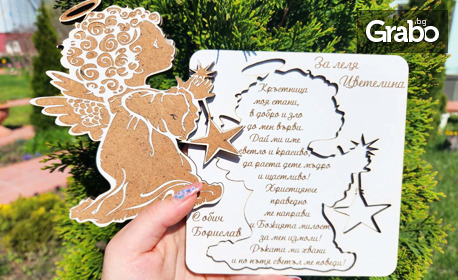 Grabo.bg
За леля
Цветелина
Кръстница
моя стани,
в добро и зло
до мен върви.
Дай ми име
светло и красиво
да раста дете мъдро
и щастливо!
Християнче
праведно
ме направи
и Божията милост
за мен измоли!
Ръката ми хвани
и по пътя светъл ме поведи!
С обич
Борислав